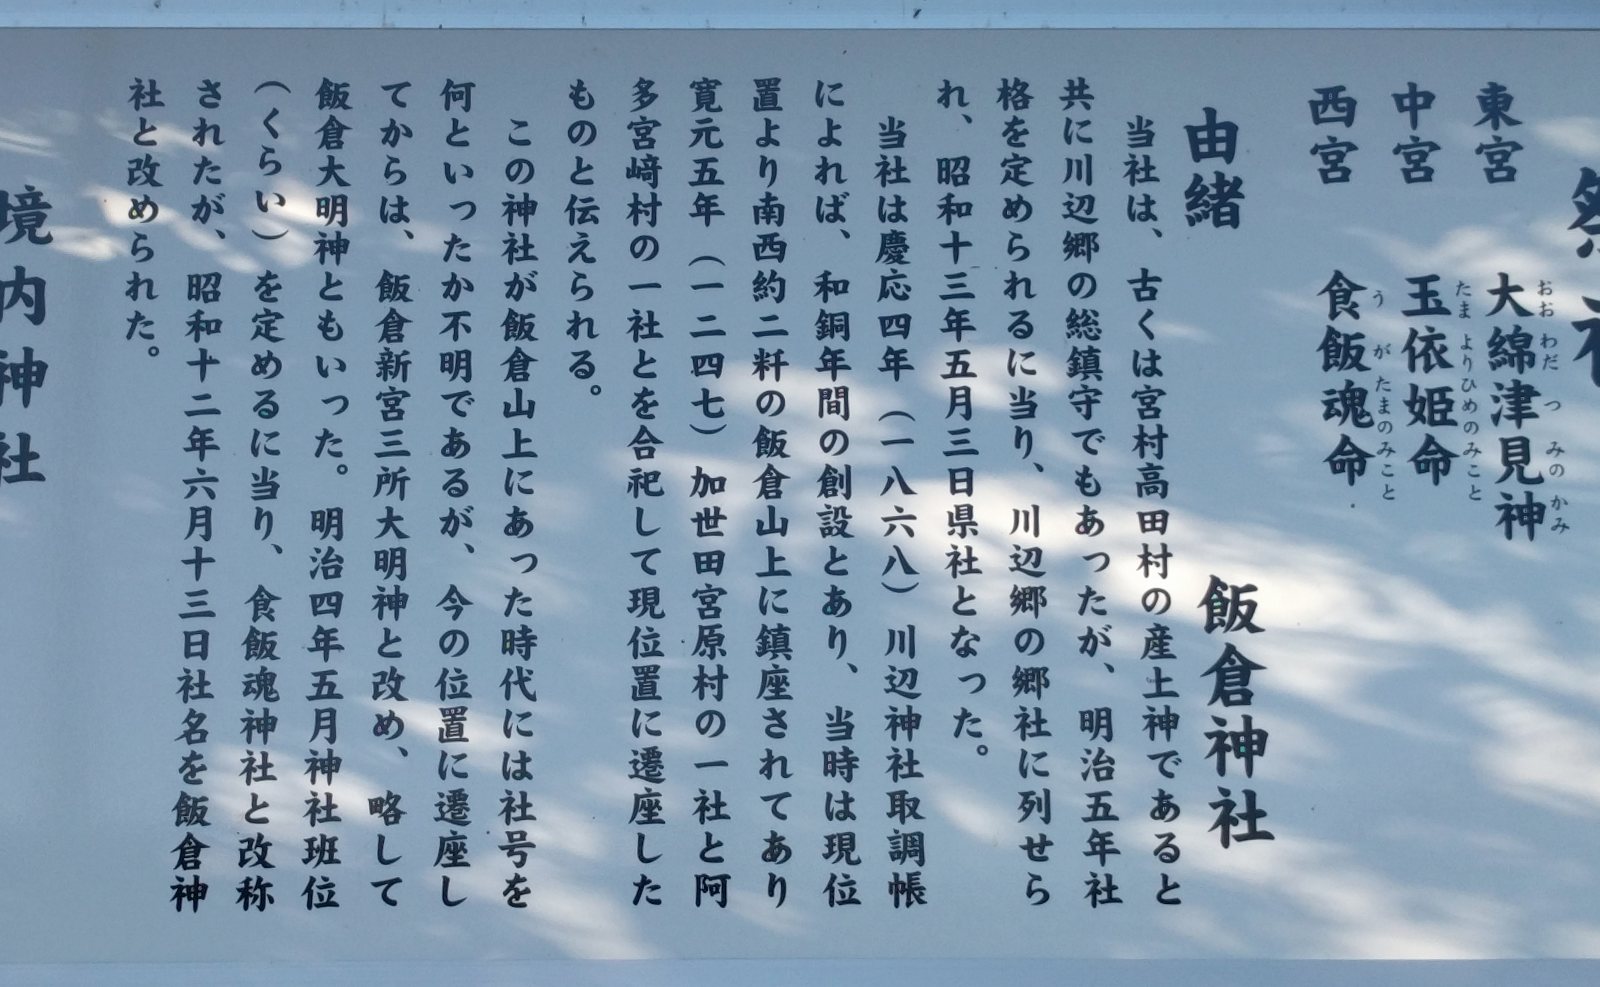 祭神
東宮 大綿津見神
おおわだつみのかみ
中宮 玉依姫命
たまよりひめのみこと
西宮 食飯魂命
うがたまのみこと
由緒 飯倉神社
当社は、古くは宮村高田村の産土神であると
共に川辺郷の総鎮守でもあったが、明治五年社
格を定められるに当り、川辺郷の郷社に列せら
れ、昭和十三年五月三日県社となった。
当社は慶応四年（一八六八）川辺神社取調帳
によれば、和銅年間の創設とあり、当時は現位
置より南西約二粁の飯倉山上に鎮座されてあり
寛元五年（一二四七）加世田宮原村の一社と阿
多宮﨑村の一社とを合祀して現位置に遷座した
ものと伝えられる。
この神社が飯倉山上にあった時代には社号を
何といったか不明であるが、今の位置に遷座し
てからは、飯倉新宮三所大明神と改め、略して
飯倉大明神ともいった。明治四年五月神社班位
（くらい）を定めるに当り、食飯魂神社と改称
されたが、昭和十二年六月十三日社名を飯倉神
社と改められた。
境内神社